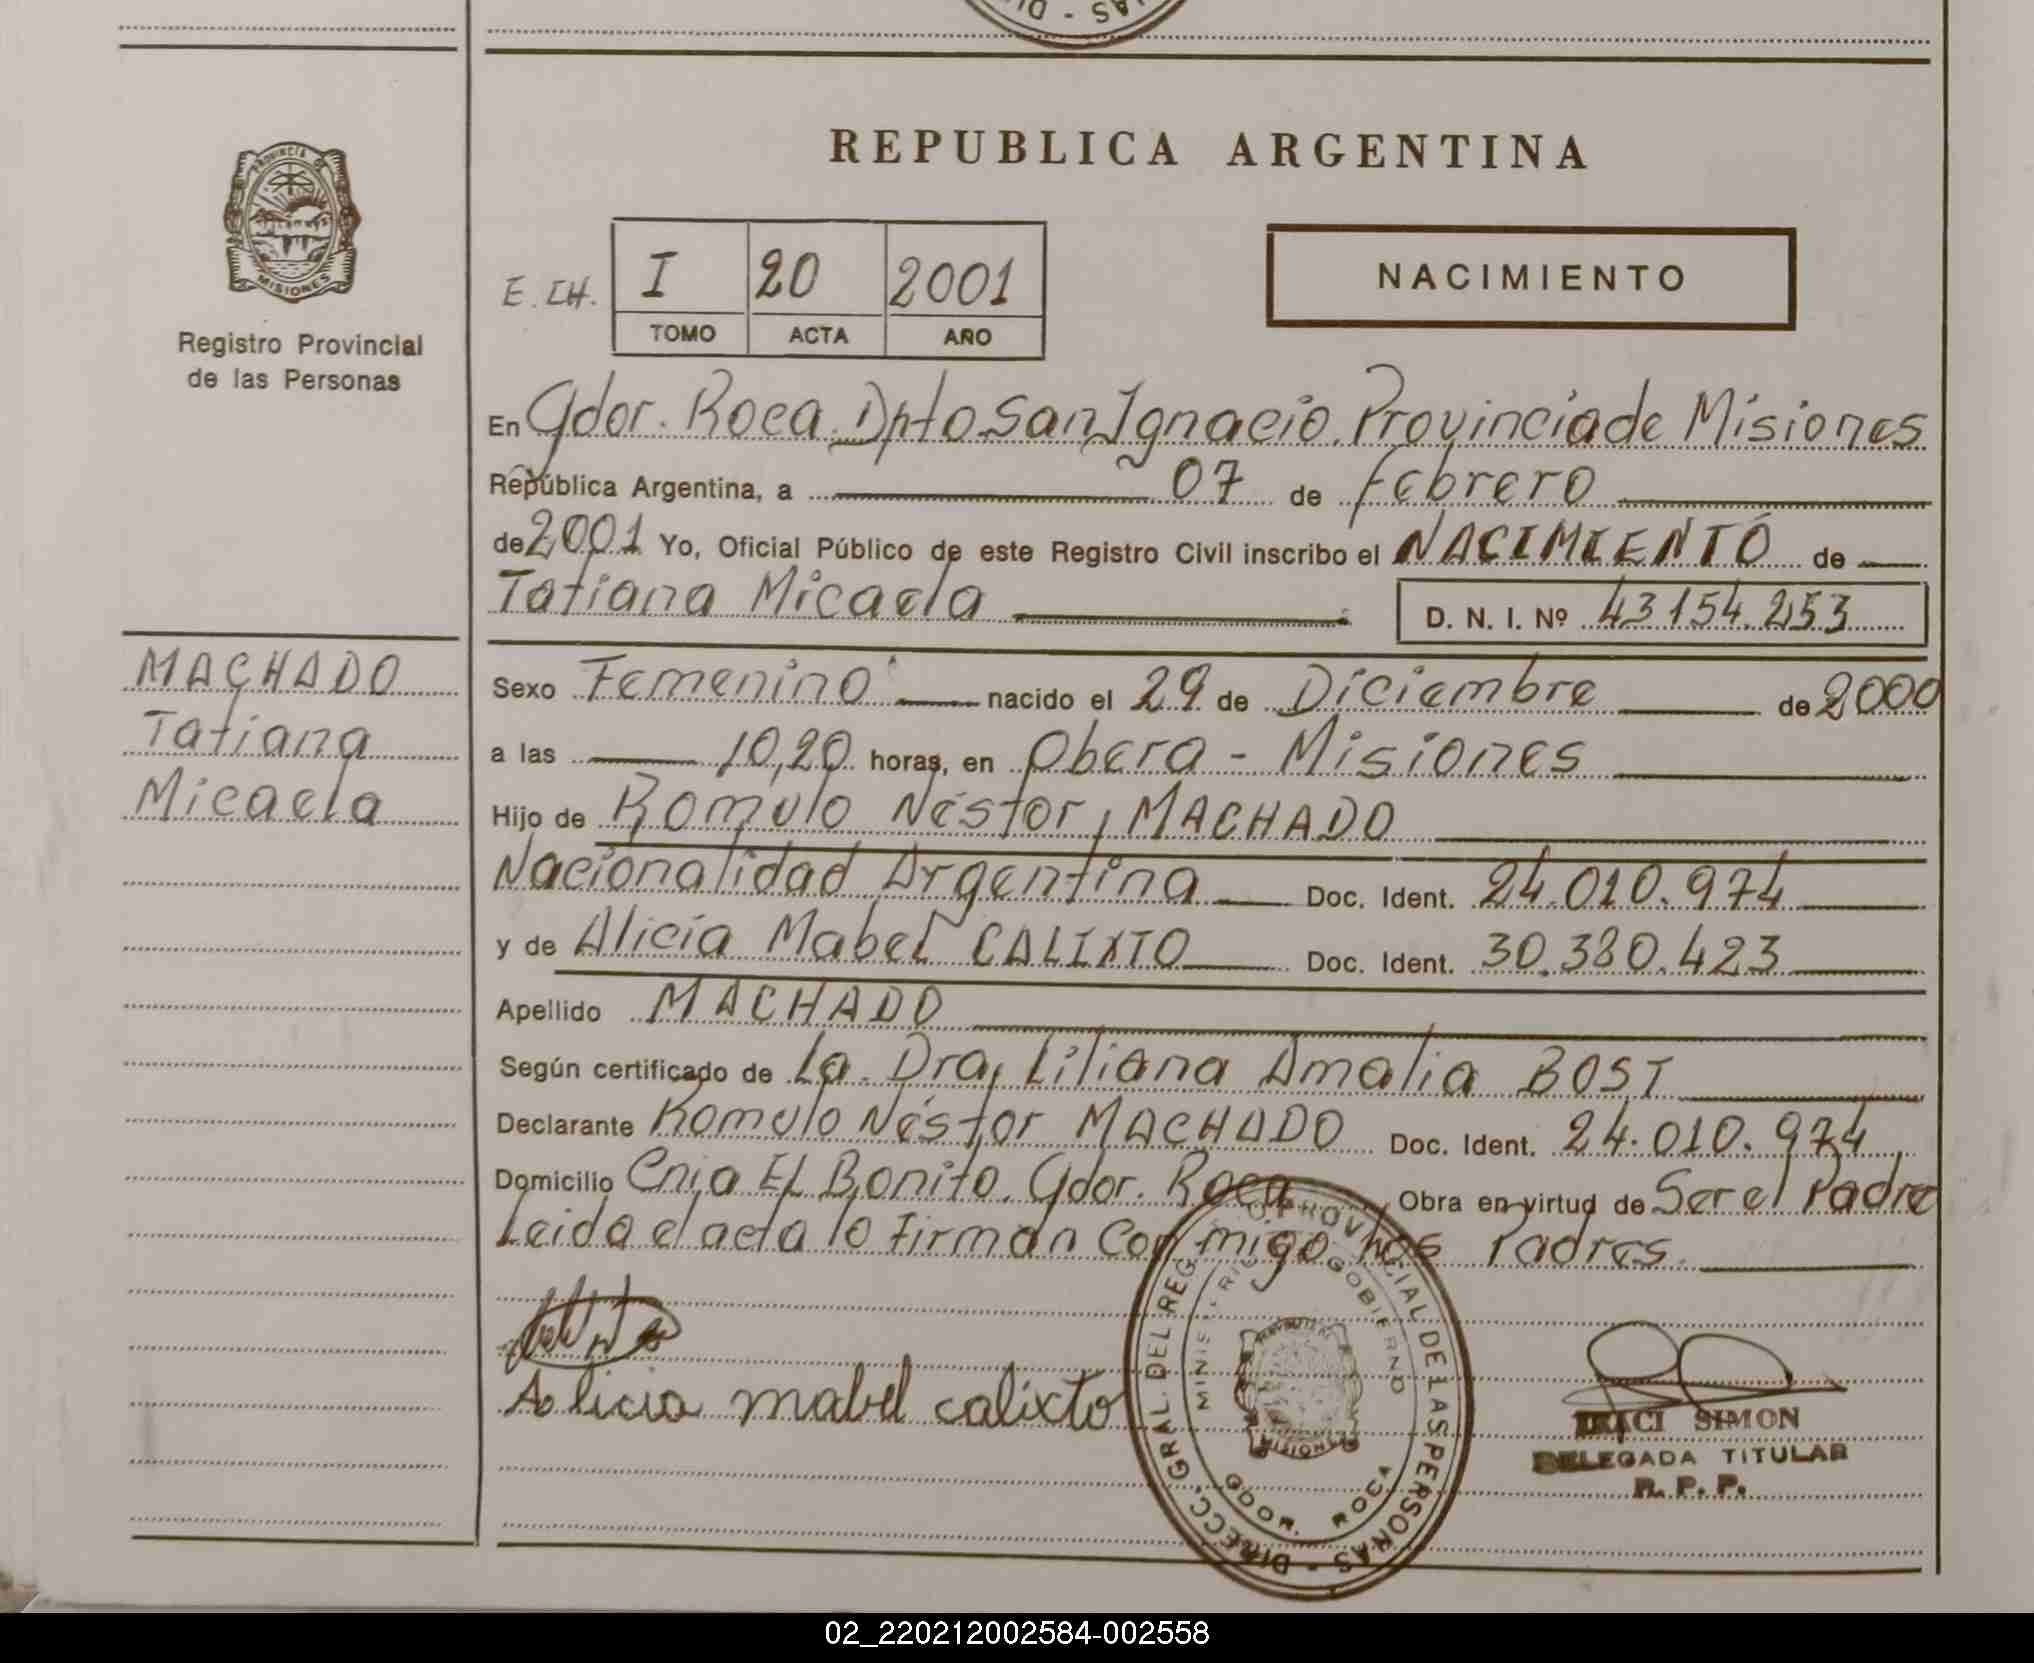 REPUBLICA ARGENTINA
PROVINCIA DE
MISIONES
Registro Provincial
de las Personas
E. CH.
I 20 2001
TOMO ACTA AÑO
NACIMIENTO
En Gdor. Roca Dpto San Ignacio. Provincia de Misiones
República Argentina, a 07 de Febrero
de 2001 Yo, Oficial Público de este Registro Civil inscribo el NACIMIENTO de
Tatiana Micaela D. N. I. Nº 43154.253
MACHADO
Tatiana
Micaela
Sexo Femenino nacido el 29 de Diciembre de 2000
a las 10,20 horas, en Obera - Misiones
Hijo de Romulo Néstor, MACHADO
Nacionalidad Argentina Doc. Ident. 24.010.974
y de Alicia Mabel CALIXTO Doc. Ident. 30.380.423
Apellido MACHADO
Según certificado de La. Dra, Liliana Amalia BOST
Declarante Romulo Néstor MACHADO Doc. Ident. 24.010.974
Domicilio Cnia EL Bonito. Gdor. Roca Obra en virtud de Ser el Padre
Leida el acta lo Firman Con migo los Padres.
Alicia mabel calixto
DIRECC. GRAL. DEL REG PROVINCIAL DE LAS PERSONAS
GOBIERNO
MISIONES
GDOR. ROCA
IRACI SIMON
DELEGADA TITULAR
R. P. P.
02_220212002584-002558